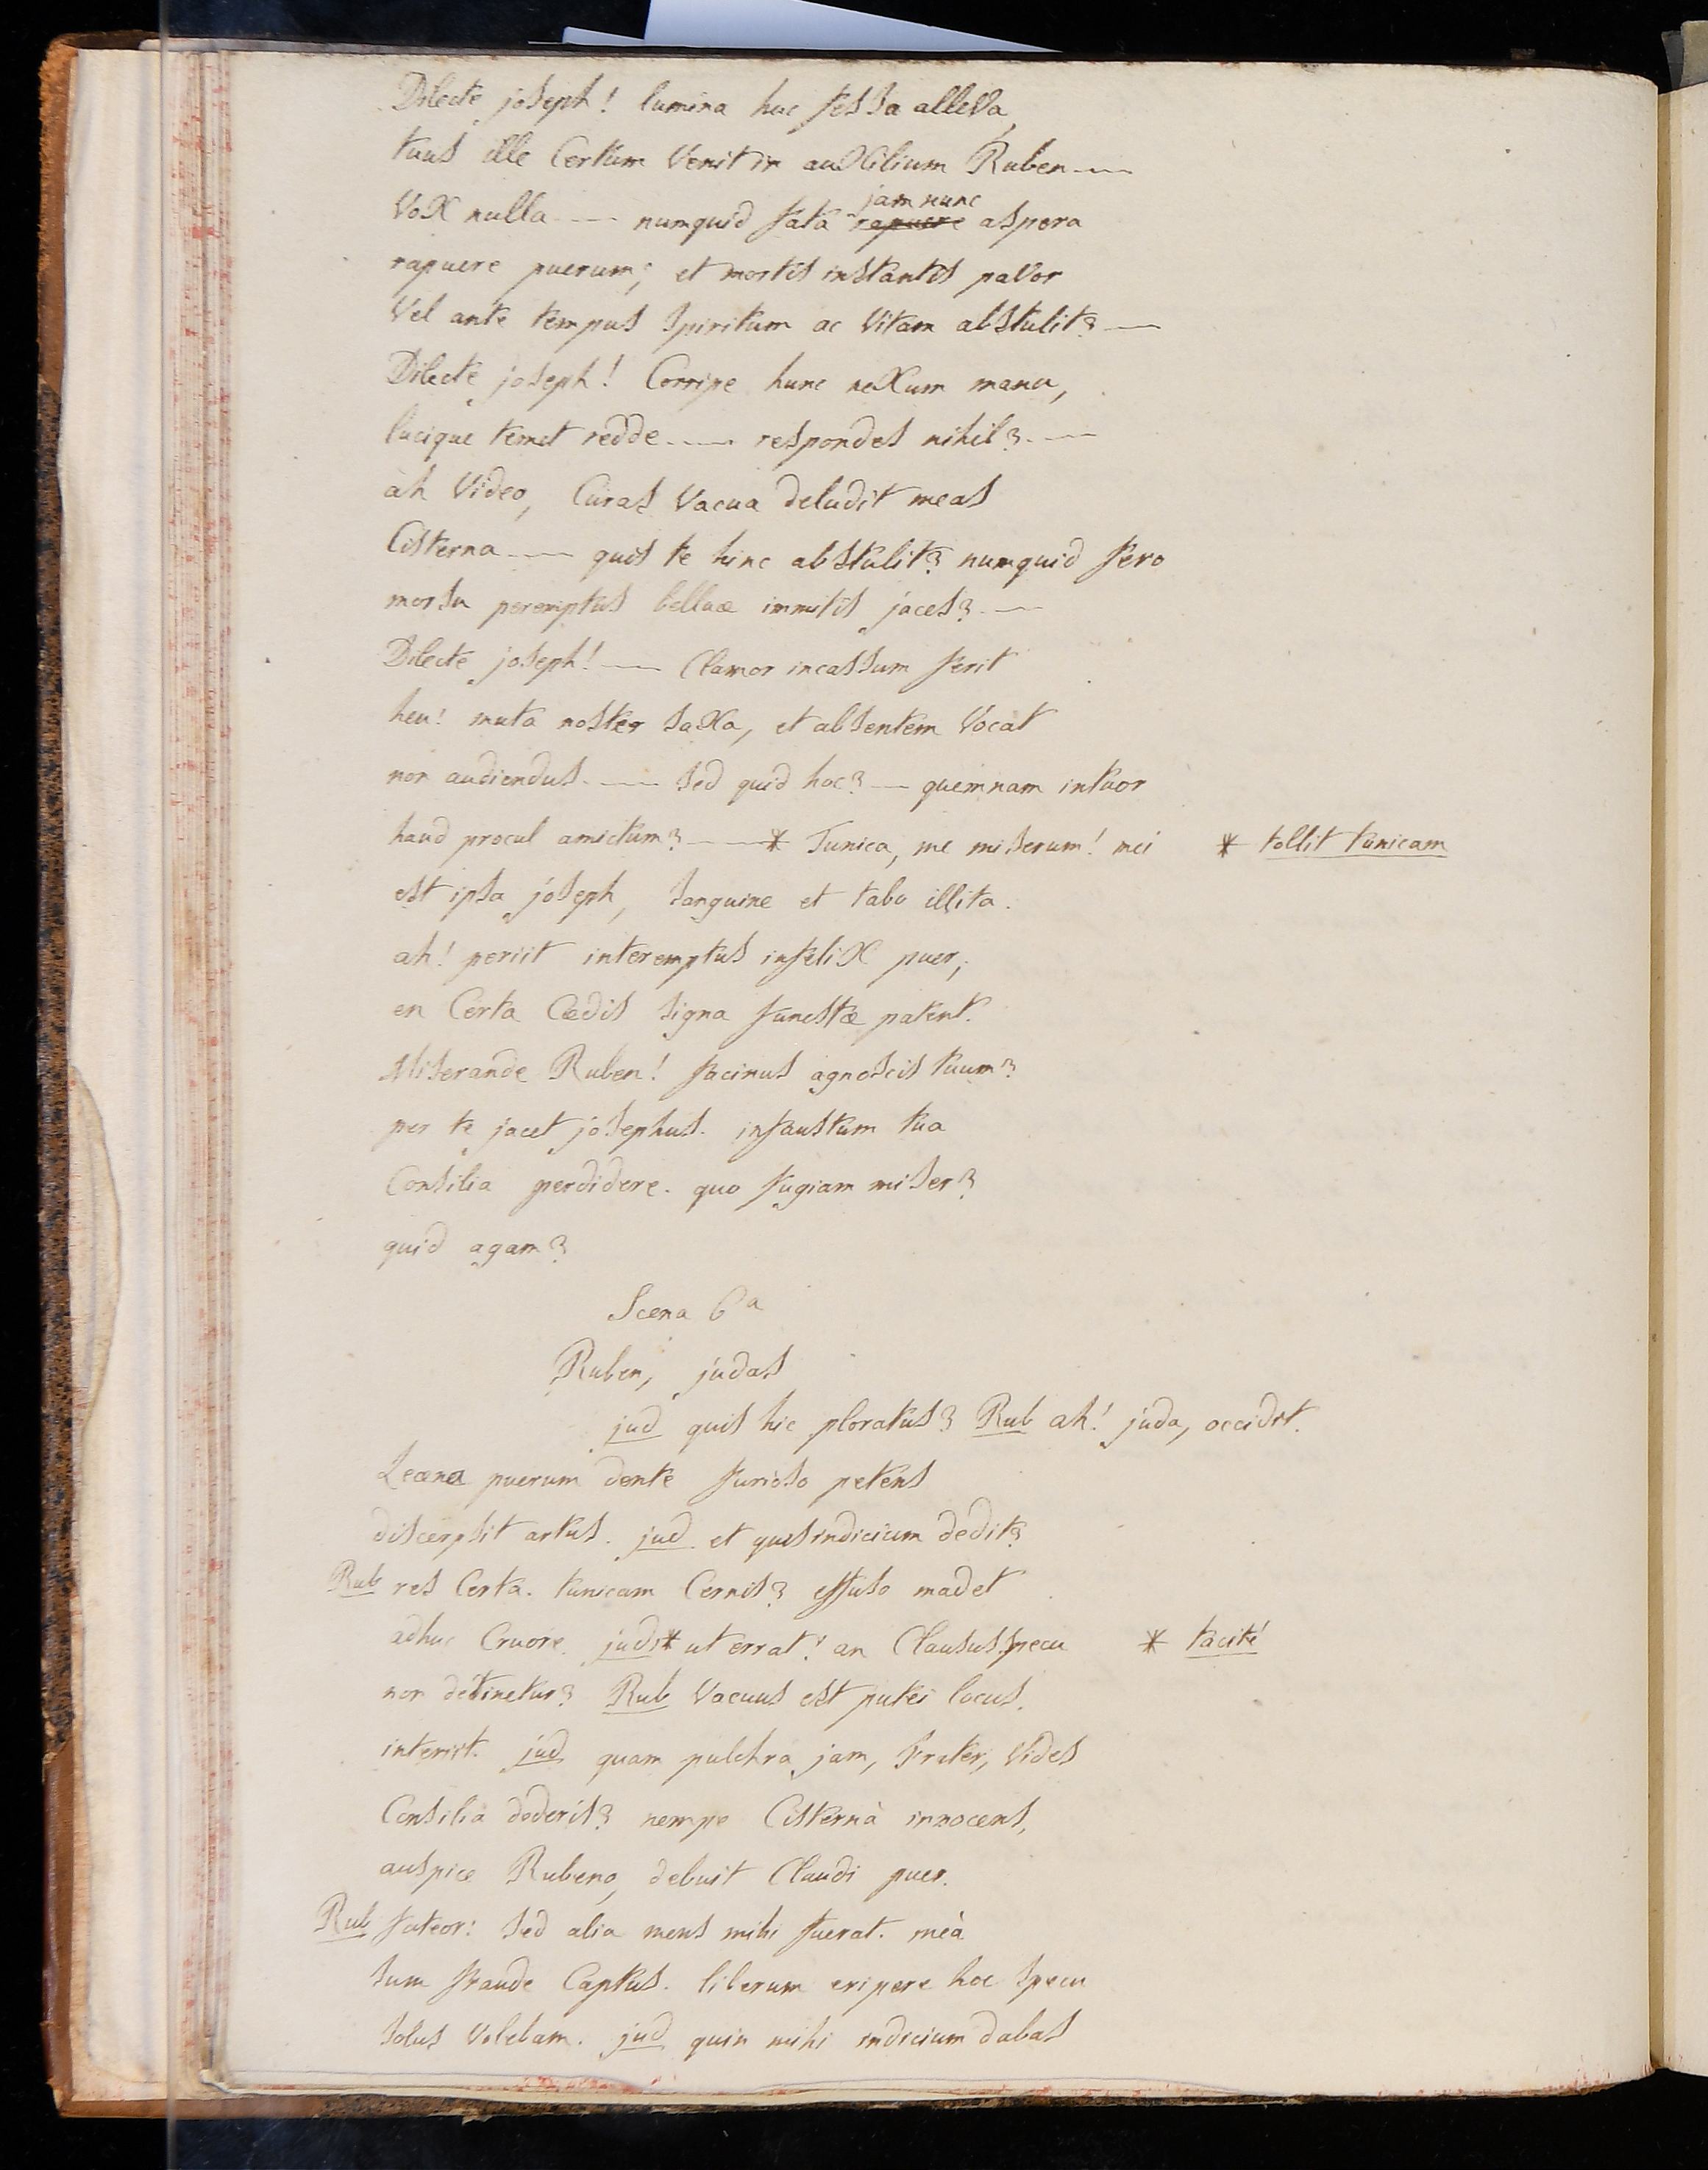 Dilecte joseph! lumina huc fessa alleva,
tuus ille Certum Venit in auxilium Ruben ----
Vox nulla ---- numquid fata rapuere jam nunc aspera
rapuere puerum; et mortis instantis pavor
Vel ante tempus spiritum ac Vitam abstulit? ----
Dilecte joseph! Corripe hunc nexum manu,
lucique temet redde ---- respondes nihil? ----
ah Video, Curas Vacua deludit meas
Cisterna ---- quis te hinc abstulit? numquid fero
morsu peremptus belluæ immitis jaces? ----
Dilecte joseph! ---- Clamor incassum ferit
heu! muta noster saxa, et absentem Vocat
non audiendus. ---- sed quid hoc? ---- quemnam intuor
haud procul amictum? ---- * Tunica, me miserum! mei * tollit tunicam
est ipsa joseph, sanguine et tabo illita.
ah! periit interemptus infelix puer;
en Certa Cædis signa funestæ patent.
Miserande Ruben! facinus agnoscis tuum?
per te jacet josephus. infaustum tua
Consilia perdidere. quo fugiam miser?
quid agam?
Scena 6a
Ruben, judas
jud quis hic ploratus? Rub ah! juda, occidit.
Leæna puerum dente furioso petens
discerpsit artus. jud et quis indicium dedit?
Rub res Certa. tunicam Cernis? effuso madet
adhuc Cruore. jud: * ut errat! an Clausus specu * tacitè
non detinetur? Rub Vacuus est putei locus.
interiit. jud quam pulchra jam, frater, Vides
Consilia dederis? nempe Cisternâ innocens,
auspice Rubeno, debuit Claudi puer.
Rub fateor: sed alia mens mihi fuerat. meà
sum fraude Captus. liberum eripere hoc specu
solus Volebam. jud quin mihi indicium dabas